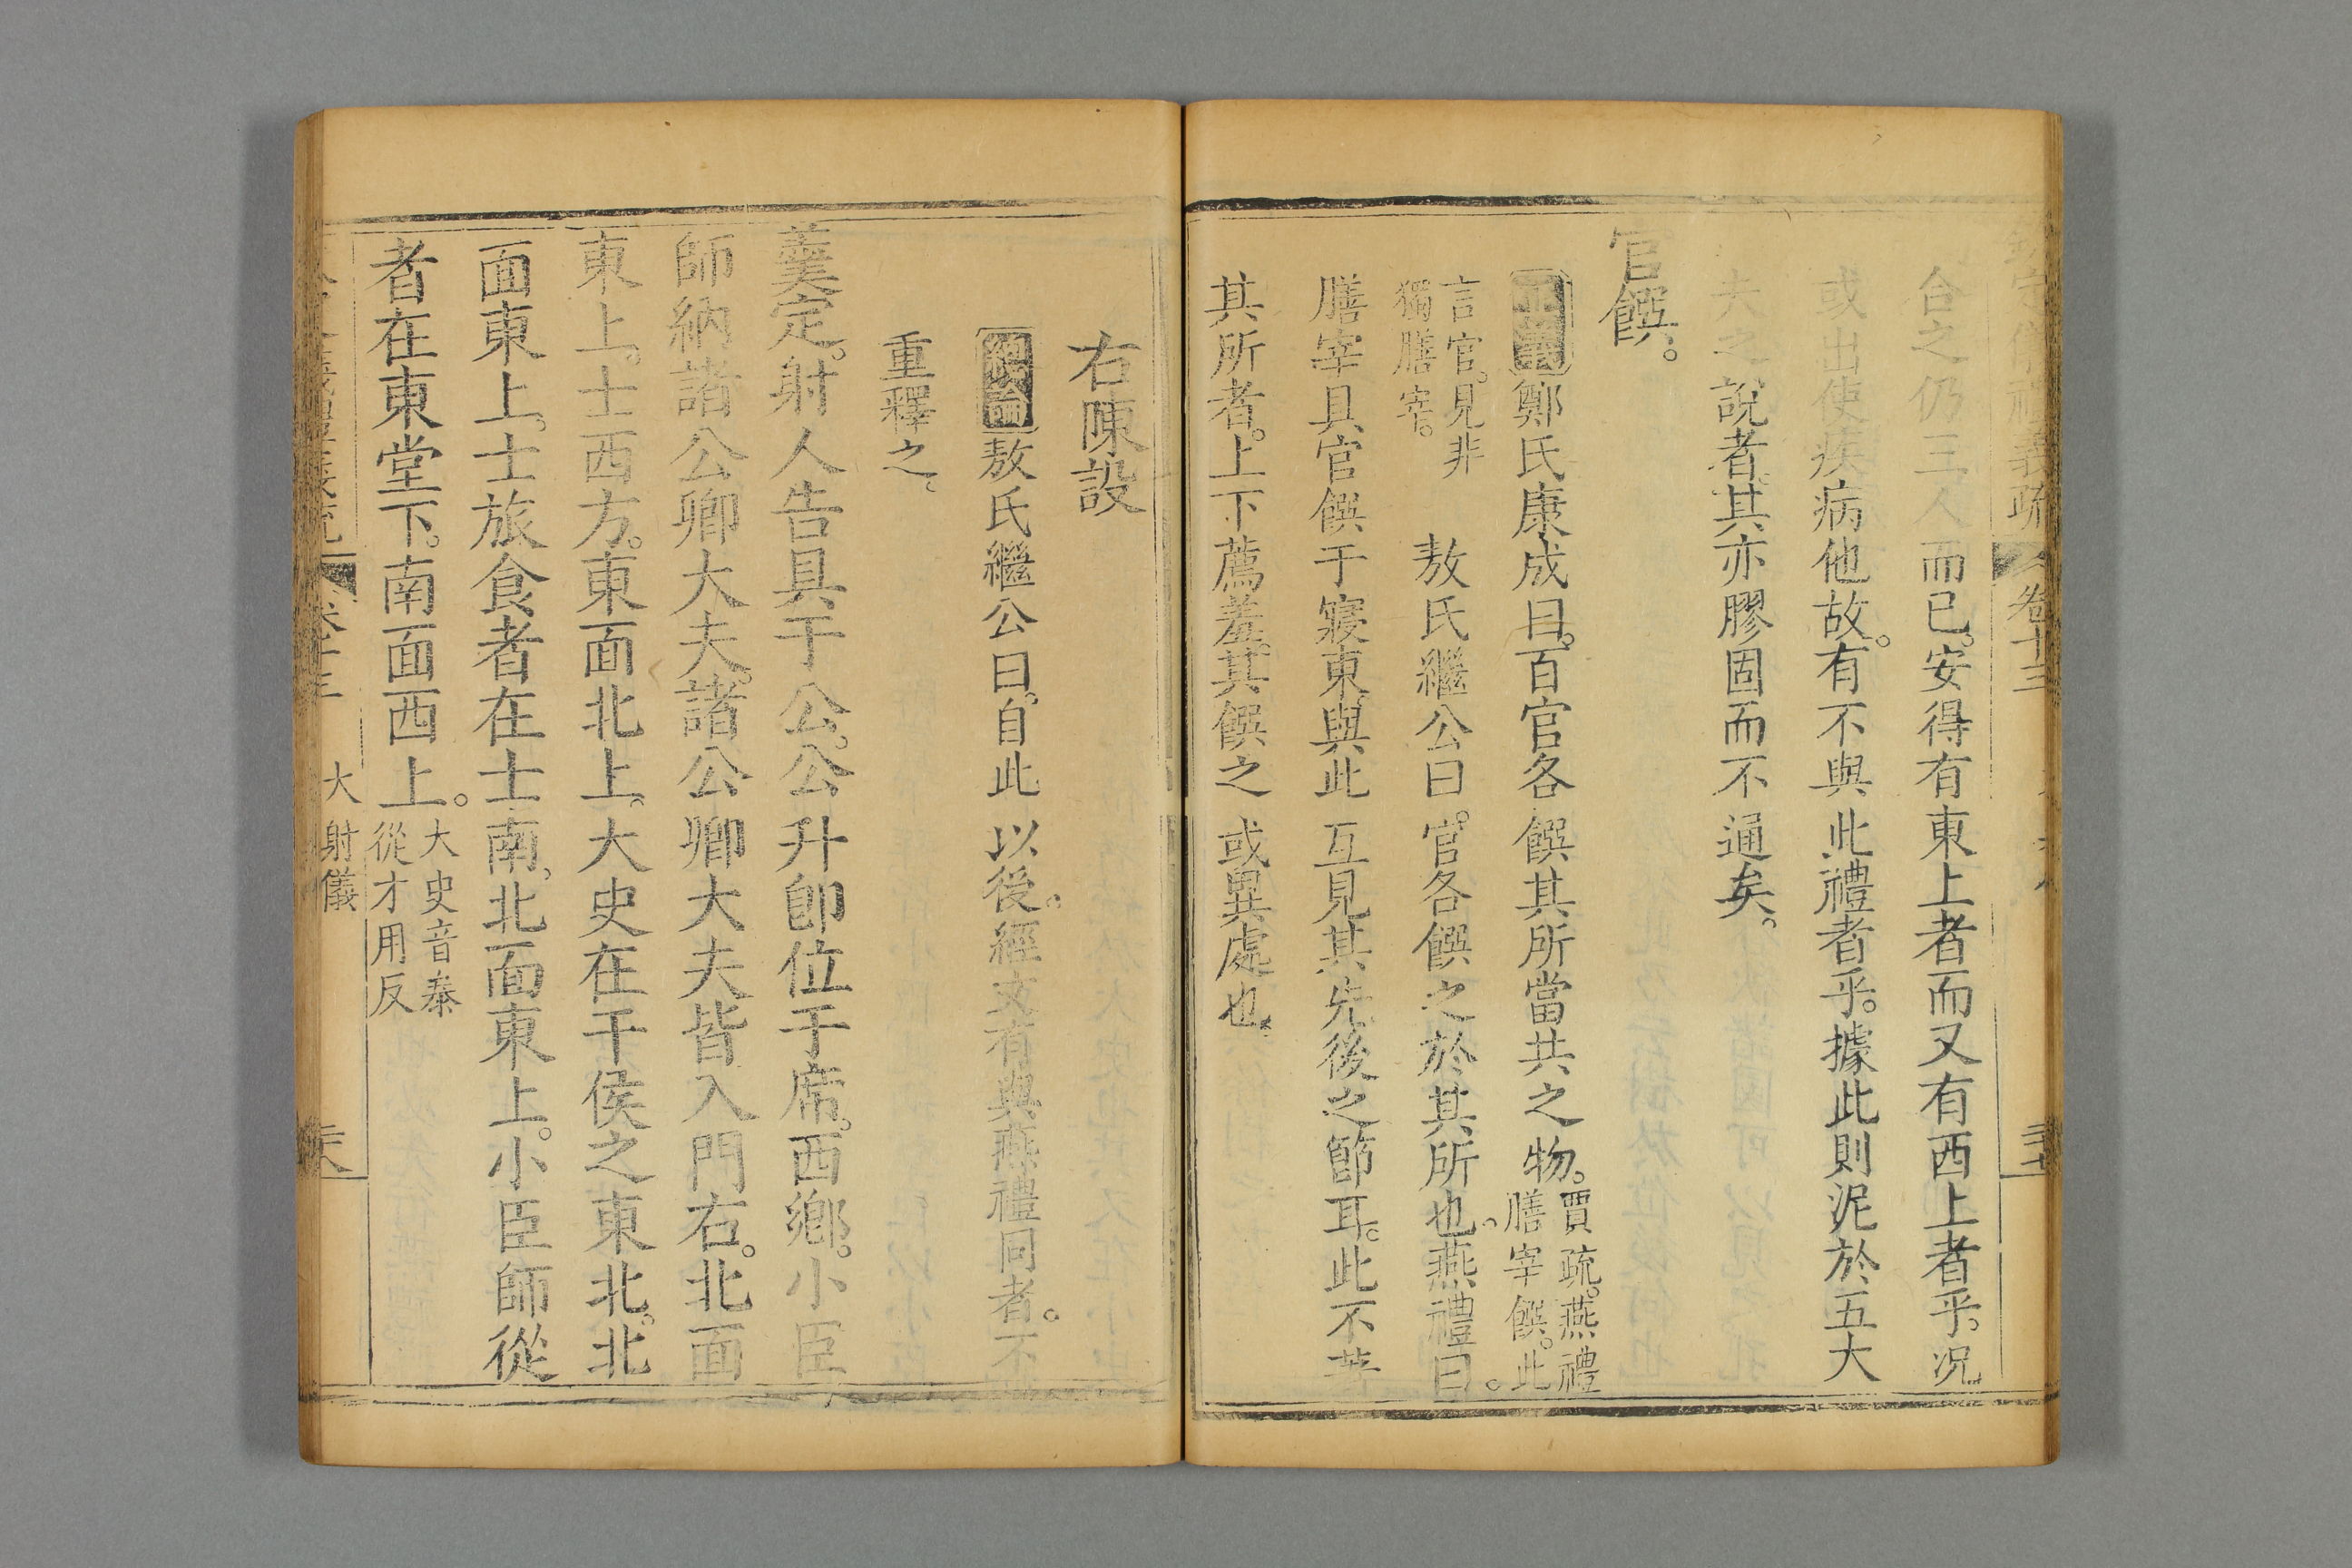 合之仍三人而已。安得有東上者而又有西上者乎。况
或出使疾病他故。有不與此禮者乎。據此則泥於五大
夫之說者。其亦膠固而不通矣。
官饌。
正義鄭氏康成曰。百官各饌其所當共之物。賈疏。燕禮
膳宰饌。此
言官。見非
獨膳宰。敖氏繼公曰。官各饌之於其所也。燕禮曰。
膳宰具官饌于寢東。與此互見其先後之節耳。此不著
其所者。上下薦羞。其饌之或異處也。
右陳設
總論敖氏繼公曰。自此以後。經文有與燕禮同者。不
重釋之。
羹定。射人告具于公。公升卽位于席。西鄉。小臣
師納諸公卿大夫。諸公卿大夫皆入門右。北面
東上。士西方。東面北上。大史在干侯之東北。北
面東上。士旅食者在士南。北面東上。小臣師從
者在東堂下。南面西上。大史音泰
從才用反
卷十三
大射儀